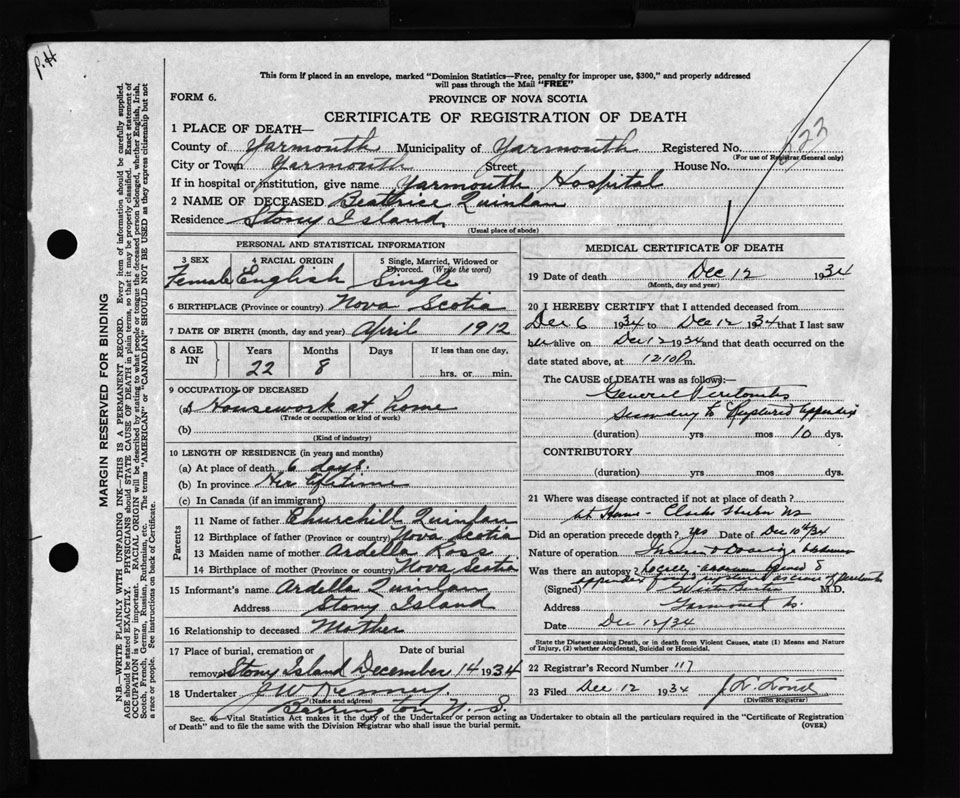 P.H
This form if placed in an envelope, marked "Dominion Statistics—Free, penalty for improper use, $300," and properly addressed
will pass through the Mail "FREE"
FORM 6.
PROVINCE OF NOVA SCOTIA
CERTIFICATE OF REGISTRATION OF DEATH
1 PLACE OF DEATH—
County of Yarmouth Municipality of Yarmouth Registered No.
(For use of Registrar General only)
City or Town Yarmouth Street House No.
If in hospital or institution, give name Yarmouth Hospital
2 NAME OF DECEASED Beatrice Quinlan
Residence Stony Island
(Usual place of abode)
PERSONAL AND STATISTICAL INFORMATION
3 SEX Female
4 RACIAL ORIGIN English
5 Single, Married, Widowed or Divorced. (Write the word) Single
6 BIRTHPLACE (Province or country) Nova Scotia
7 DATE OF BIRTH (month, day and year) April 1912
8 AGE IN Years Months Days If less than one day,
22 8 hrs. or min.
9 OCCUPATION OF DECEASED
(a) Housework at home
(Trade or occupation or kind of work)
(b)
(Kind of industry)
10 LENGTH OF RESIDENCE (in years and months)
(a) At place of death 6 days.
(b) In province Her lifetime
(c) In Canada (if an immigrant)
Parents
11 Name of father Churchill Quinlan
12 Birthplace of father (Province or country) Nova Scotia
13 Maiden name of mother Ardella Ross
14 Birthplace of mother (Province or country) Nova Scotia
15 Informant's name Ardella Quinlan
Address Stony Island
16 Relationship to deceased Mother
17 Place of burial, cremation or removal Date of burial
Stony Island December 14 1934
18 Undertaker J W Kenney
(Name and address)
Barrington N. S.
MEDICAL CERTIFICATE OF DEATH
19 Date of death Dec 12 1934
(Month, day and year)
20 I HEREBY CERTIFY that I attended deceased from
Dec 6 1934 to Dec 12 1934 that I last saw
her alive on Dec 12 1934 and that death occurred on the
date stated above, at 12 10 P m.
The CAUSE of DEATH was as follows:—
General Peritonitis
Secondary to Ruptured Appendix
(duration) yrs mos 10 dys.
CONTRIBUTORY
(duration) yrs mos dys.
21 Where was disease contracted if not at place of death ?
At Home - Clarks Harbor NS
Did an operation precede death ? yes Date of Dec 10th/34
Nature of operation abdomen
Was there an autopsy ?
appendix
(Signed) M.D.
Address Yarmouth
Date Dec 12/34
State the Disease causing Death, or in death from Violent Causes, state (1) Means and Nature
of Injury, (2) whether Accidental, Suicidal or Homicidal.
22 Registrar's Record Number 117
23 Filed Dec 12 1934
(Division Registrar)
Sec. 46—Vital Statistics Act makes it the duty of the Undertaker or person acting as Undertaker to obtain all the particulars required in the "Certificate of Registration
of Death" and to file the same with the Division Registrar who shall issue the burial permit.
(OVER)
MARGIN RESERVED FOR BINDING
N.B.—WRITE PLAINLY WITH UNFADING INK—THIS IS A PERMANENT RECORD. Every item of information should be carefully supplied.
AGE should be stated EXACTLY. PHYSICIANS should STATE CAUSE OF DEATH in plain terms, so that it may be properly classified. Exact statement of
OCCUPATION is very important. RACIAL ORIGIN will be described by stating to what people or tongue the deceased person belonged, whether English, Irish,
Scotch, French, German, Russian, Ruthenian, etc. The terms "AMERICAN" or "CANADIAN" SHOULD NOT BE USED as they express citizenship but not
a race or people. See instructions on back of Certificate.